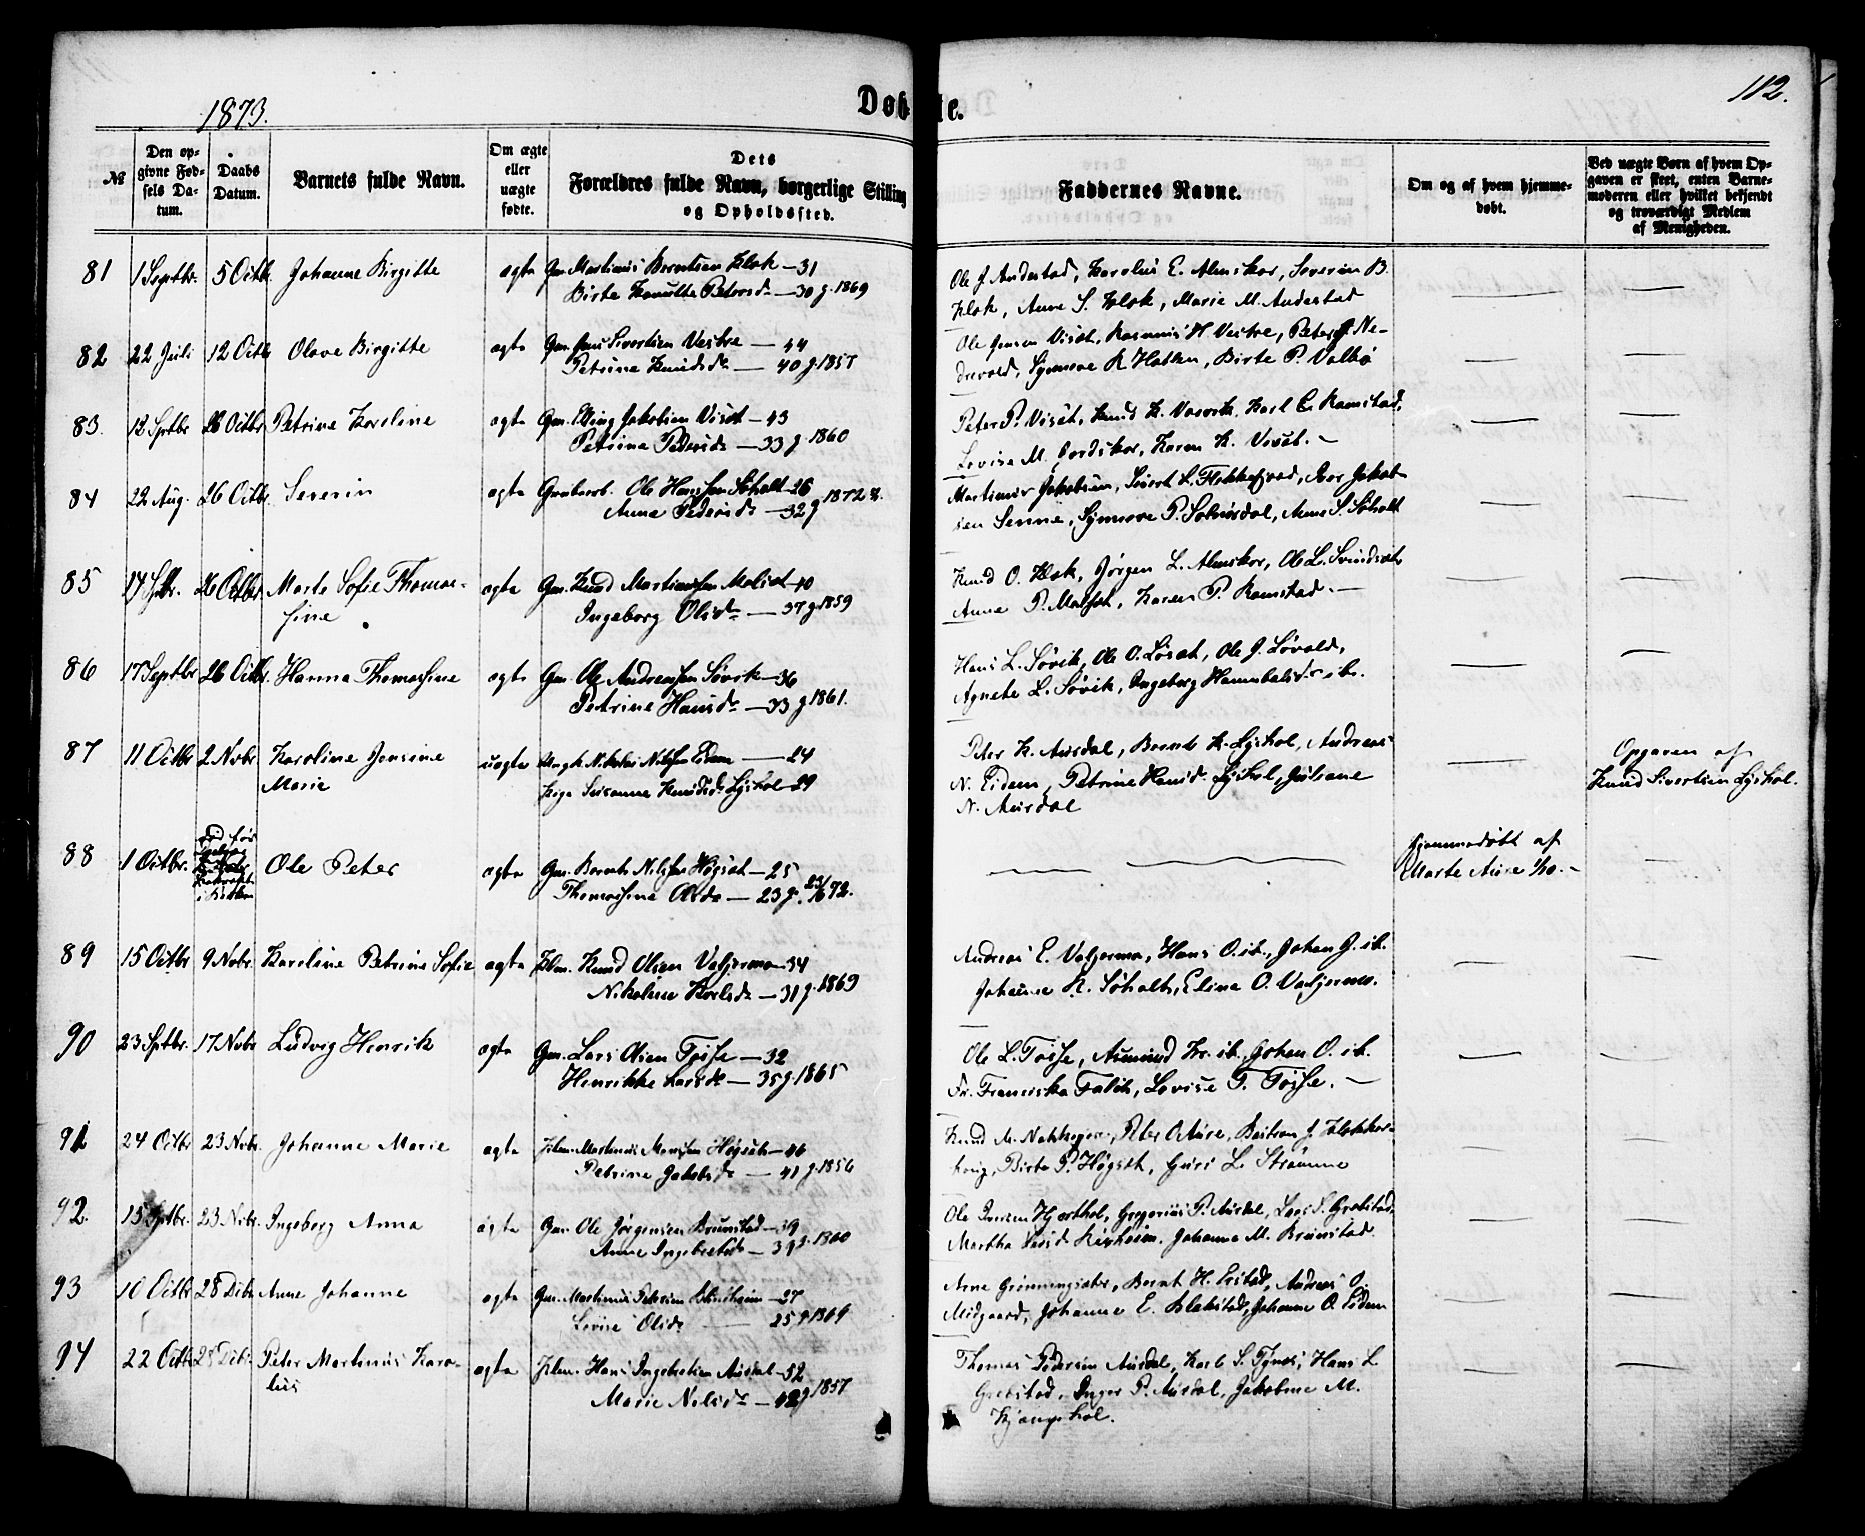 1873.
Døbte.
112.
№
Den op-
givne Fød-
sels Da-
tum.
Daabs
Datum.
Barnets fulde Navn.
Om ægte
eller
uægte
fødte.
Dets
Forældres fulde Navn, borgerlige Stilling
og Opholdssted.
Faddernes Navne.
Om og af hvem hjemme-
døbt.
Ved uægte Børn af hvem Op-
gaven er skeet, enten Barne-
moderen eller hvilket bekjendt
og troværdigt Medlem
af Menigheden.
81 1 Septbr. 5 Octb. Johanne Birgitte ægte Gm. Martinus Berntsen Klok — 31
Birte Knutte Petersd. — 30 g. 1869
Ole J Andestad, Karolus E. Almskar, Severin B.
Klok, Anne S. Klok, Marie M. Andestad
82 22 Juli 12 Octb Olave Birgitte ægte Gm. Jens Sivertsen Vestre — 44
Petrine Knudsd. — 40 g. 1857
Ole Jensen Visæt, Rasmus H Vestre, Peter J. Ne-
drevold, Synnøve R Hatlen, Birte P. Valbø
83. 12 Sptbr 26 Octbr Petrine Karoline ægte Gm. Elling Jakobsen Visæt — 43
Petrine Pedersd. — 33 g. 1860
Peter P. Visæt, Knud K. Vasvik, Karl E. Ramstad,
Lovise M. Jordskar, Karen K. Visæt. —
84 22 Aug. 26 Octbr. Severin ægte Grubearb. Ole Hansen Søholt — 26
Anne Pedersd. — 32 g 1872
Martinus Jakobsen, Sivert L. Flekkefjord, Iver Jakob-
sen Senne, Synnøve P. Solnørdal, Anne S. Søholt
85 14 Sptbr. 26 Octbr. Marte Sofie Thomas-
sine ægte Gm. Knud Martinussen Melset — 40
Ingeborg Olsd. — 37 g. 1859
Knud O. Klok, Jørgen L. Almskar, Ole L. Svindsæt
Anne P. Melset, Karen P. Ramstad. —
86 17 Septbr 26 Octbr. Hanna Thomassine ægte Gm. Ole Andreassen Søvik — 36
Petrine Hansd. — 33 g 1861.
Hans L. Søvik, Ole O. Løset, Ole J. Løvold,
Agnete L. Søvik, Ingeborg Hannibalsd. ib.
87 11 Octbr 2 Novbr. Karoline Jensine
Marie uægte Ungk. Nikolai Nilssen Eidem — 24
Pige Susanne Knudsd. Lyshol 29
Peter K. Aursdal, Bernt K. Lyshol, Andreas
N. Eidem, Petrine Hansd. Lyshol, Juliane
N. Aursdal
Opgaven af
Knud Sivertsen Lyshol.
88 1 Octbr. Ole Peter ægte Gm. Bernt Nilssen Høgset — 25
Thomassine Olsd. — 23 g. 23/6 72.
Hjemmedøbt af
Marte Aure 1/10. —
89 15 Octbr 9 Novbr. Karoline Petrine Sofie ægte Hm. Knud Olsen Valgermo — 34
Nikoline Karlsd. — 31 g. 1869
Andreas E. Valgermo, Hans O. ib., Johan J. ib.
Johanne K. Søholt, Eline O. Valgermo.
90 23 Sptbr. 17 Novbr Ludvig Henrik ægte Gm. Lars Olsen Tøsse — 32
Henrikke Larsd. — 35 g. 1865
Ole L. Tøsse, Asmund Kr. ib., Johan O. ib.
Fr. Franciska Falch, Lovise T. Tøsse. —
91 24 Octbr 23 Nvbr. Johanne Marie ægte Hm. Martinus Monsen Høgset — 46
Petrine Jakobsd. — 41 g. 1856
Knud M. Nakkegjerde, Peter O Aure, Bastian J. Klokker-
haug, Birte P. Høgset, Guri L. Strømme
92. 15 Sptbr. 23 Nvbr. Ingeborg Anna ægte Gm. Ole Jørgensen Brunstad — 39
Anne Ingebretsd. — 39 g. 1860
Ole Iversen Hjorthol, Gregorius P. Aursdal, Lars S. Grebstad,
Martha Larsd Kirkheim, Johanna M. Brunstad.
93 10 Octbr 28 Dcbr. Anne Johanne ægte Gm. Martinus Petersen Blindheim — 27
Lovise Olsd. — 25 g 1869
Arne Grønningsæter, Bernt H. Erstad, Andreas O.
Midgaard, Johanne E. Klokstad, Johanne O. Eidem
94 22 Octbr 28 Dcbr. Peter Martinus Karo-
lus ægte Hm. Hans Ingebretsen Aursdal — 52
Marie Nilsd. — 42 g 1857
Thomas Pedersen Aursdal, Karl S. Tynes, Hans L
Grebstad, Inger P. Aursdal, Jakobine M.
Kjængshol.